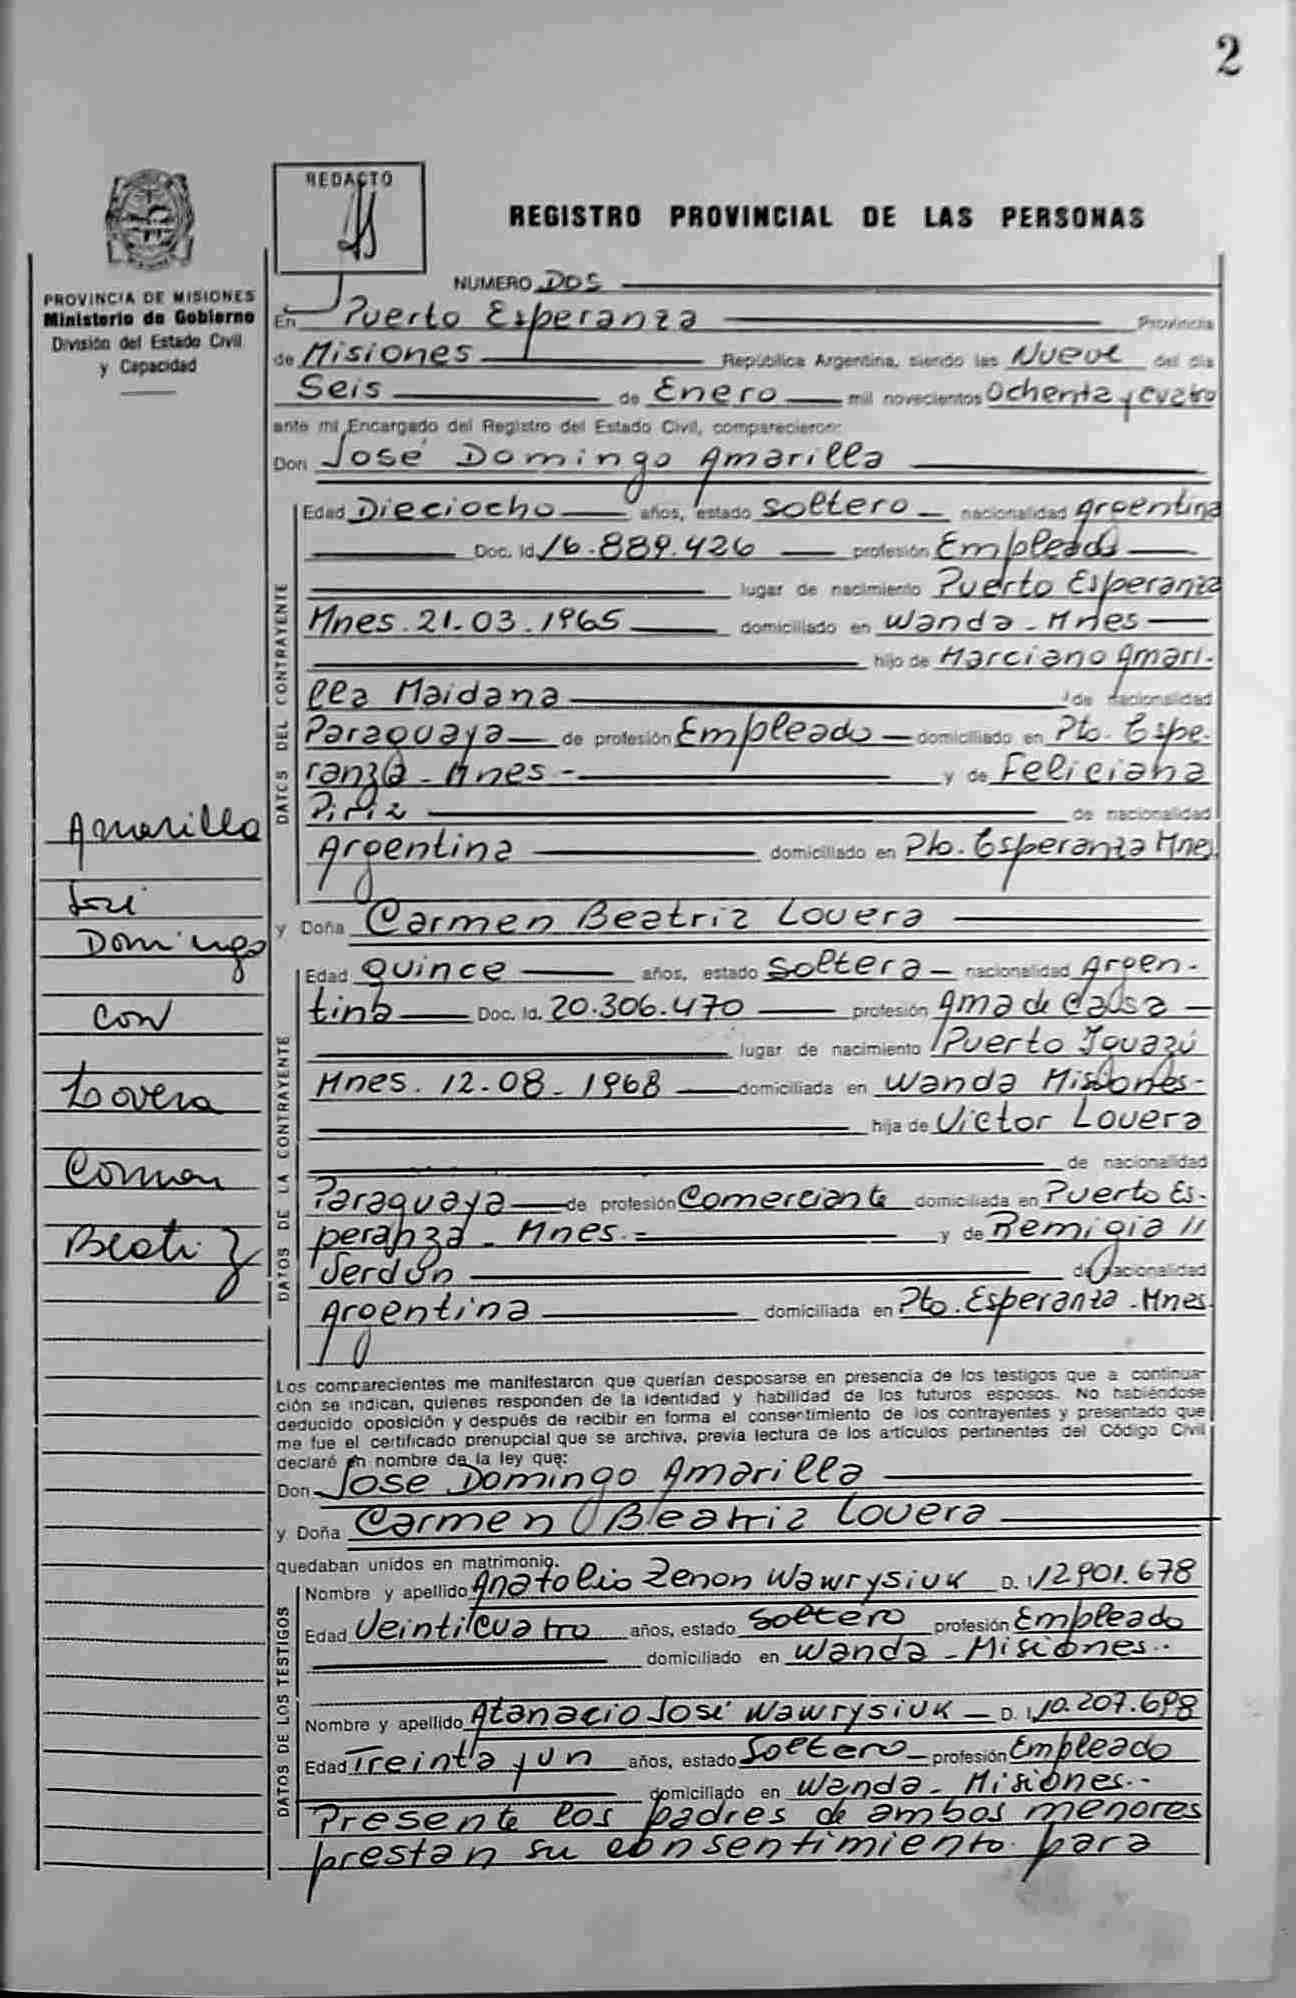 2
REDACTO
REGISTRO PROVINCIAL DE LAS PERSONAS
PROVINCIA DE MISIONES
Ministerio de Gobierno
División del Estado Civil
y Capacidad
NUMERO Dos
En Puerto Esperanza Provincia
de Misiones República Argentina, siendo las Nueve del día
Seis de Enero mil novecientos Ochenta y cuatro
ante mí Encargado del Registro del Estado Civil, comparecieron:
Don José Domingo Amarilla
DATOS DEL CONTRAYENTE
Edad Dieciocho años, estado soltero nacionalidad Argentina
Doc. Id. 16.889.426 profesión Empleado
lugar de nacimiento Puerto Esperanza
Mnes. 21-03.1965 domiciliado en Wanda - Mnes
hijo de Marciano Amari-
lla Maidana de nacionalidad
Paraguaya de profesión Empleado domiciliado en Pto. Espe-
ranza - Mnes - y de Feliciana
Piriz de nacionalidad
Argentina domiciliado en Pto. Esperanza Mnes.
y Doña Carmen Beatriz Lovera
DATOS DE LA CONTRAYENTE
Edad quince años, estado Soltera nacionalidad Argen-
tina Doc. Id. 20.306.470 profesión Ama de Casa
lugar de nacimiento Puerto Iguazú
Mnes. 12-08-1968 domiciliada en Wanda Misiones-
hija de Victor Lovera
de nacionalidad
Paraguaya de profesión Comerciante domiciliada en Puerto Es-
peranza - Mnes.= y de Remigia "
Verdún de nacionalidad
Argentina domiciliada en Pto. Esperanza - Mnes.
Amarilla
José
Domingo
con
Lovera
Carmen
Beatriz
Los comparecientes me manifestaron que querían desposarse en presencia de los testigos que a continua-
ción se indican, quienes responden de la identidad y habilidad de los futuros esposos. No habiéndose
deducido oposición y después de recibir en forma el consentimiento de los contrayentes y presentado que
me fue el certificado prenupcial que se archiva, previa lectura de los artículos pertinentes del Código Civil
declaré en nombre de la ley que:
Don José Domingo Amarilla
y Doña Carmen Beatriz Lovera
quedaban unidos en matrimonio.
DATOS DE LOS TESTIGOS
Nombre y apellido Anatolio Zenon Wawrysiuk D. I. 12901.678
Edad Veinticuatro años, estado Soltero profesión Empleado
domiciliado en Wanda - Misiones.-
Nombre y apellido Atanacio José Wawrysiuk D. I. 10.207.698
Edad Treinta y un años, estado Soltero profesión Empleado
domiciliado en Wanda - Misiones.-
Presente los padres de ambos menores
prestan su consentimiento para